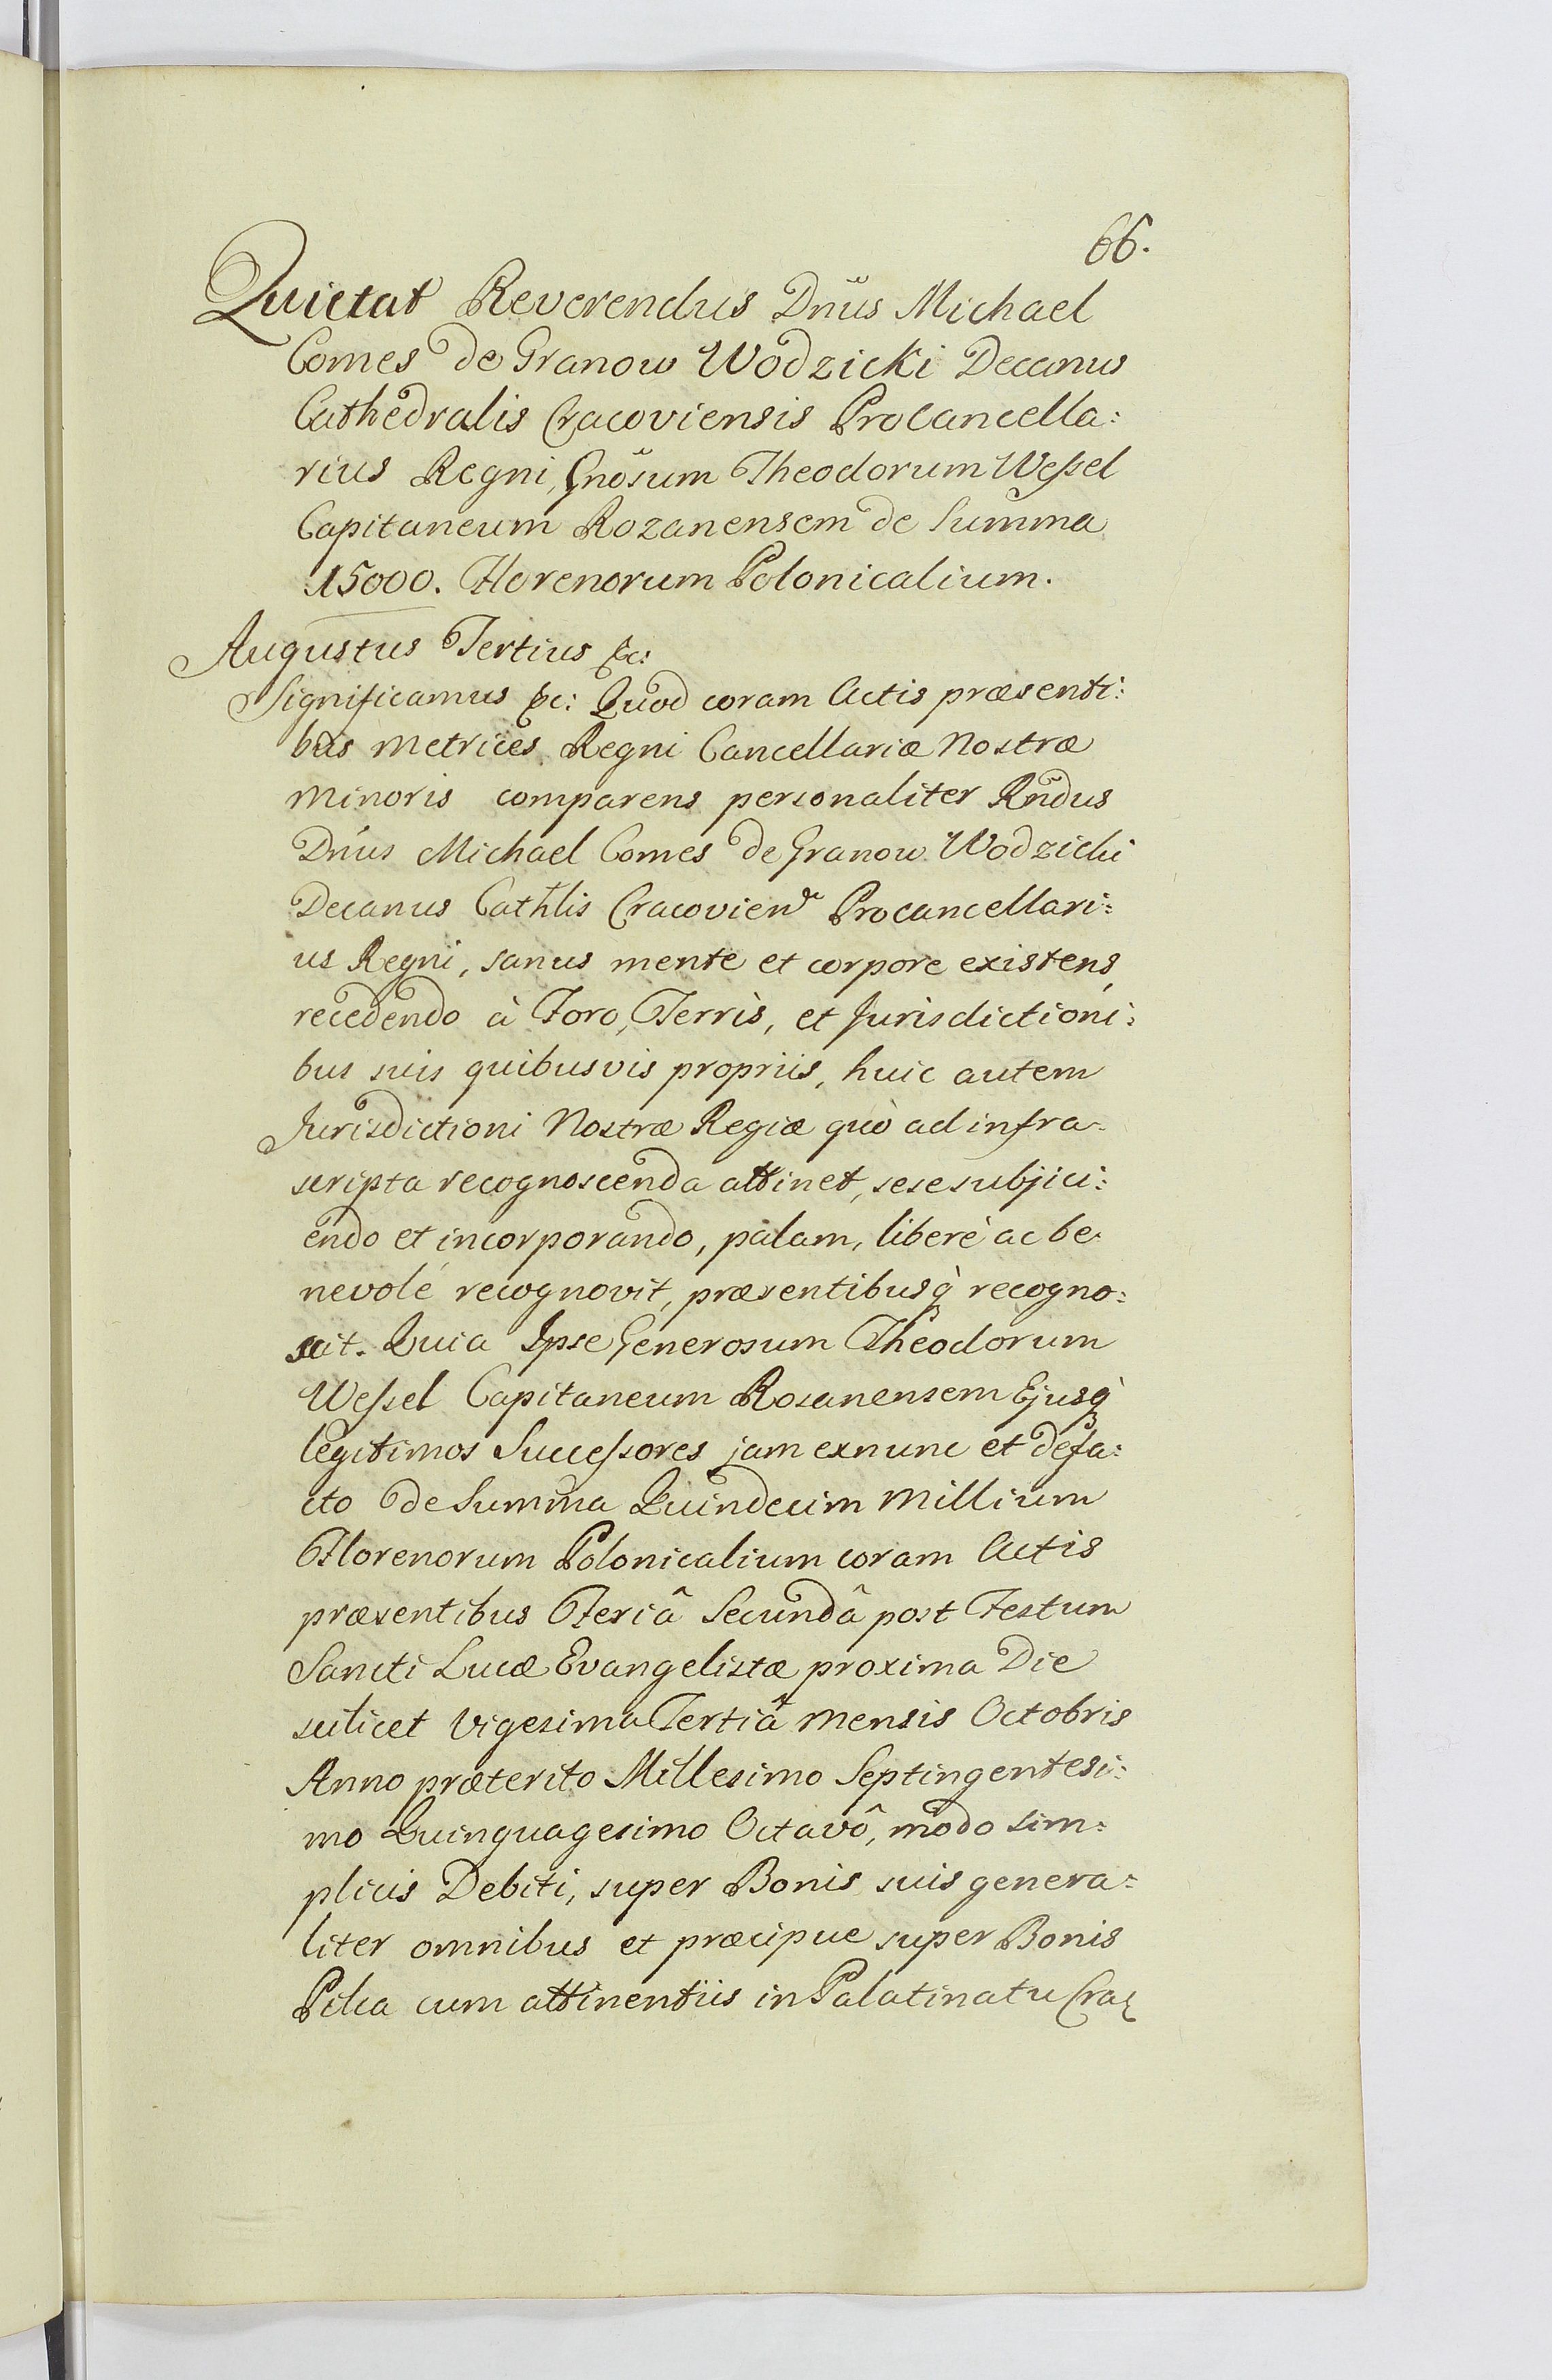 66.
Quietat Reverendus Dnus Michael
Comes de Granow Wodzicki Decanus
Cathedralis Cracoviensis ProCancella:
rius Regni, Gnosum Theodorum Weſsel
Capitaneum Rozanensem de Summa
15000. Florenorum Polonicalium.
Augustus Tertius &c:
Significamus &c: Quod coram Actis præsenti:
bus Metrices Regni Cancellariæ Nostræ
Minoris comparens personaliter Rndus
Dnus Michael Comes de Granow Wodzicki
Decanus Cathlis Cracovien Procancellari:
us Regni, sanus mente et corpore existens,
recedendo à Foro, Terris, et Jurisdictioni:
bus suis quibusvis propriis, huic autem
Jurisdictioni Nostræ Regiæ quò ad infra
scripta recognoscenda attinet, sese subjici:
endo et incorporando, palam, liberè ac be
nevolé recognovit, præsentibusq̀ recogno:
scit. Quia Ipse Generosum Theodorum
Weſsel Capitaneum Rosanensem Ejusq̀
legitimos Succeſsores jam exnunc et defa:
cto de Summa Quindecim Millium
Florenorum Polonicalium coram Actis
præsentibus Feriâ Secundâ post Festum
Sancti Lucæ Evangelistæ proxima Die
scilicet Vigesima Tertiâ Mensis Octobris
Anno præterito Millesimo Septingentesi:
mo Quinquagesimo Octavô, modo sim:
plicis Debiti, super Bonis suis genera:
liter omnibus et præcipue super Bonis
Pilca cum attinentiis in Palatinatu Crac